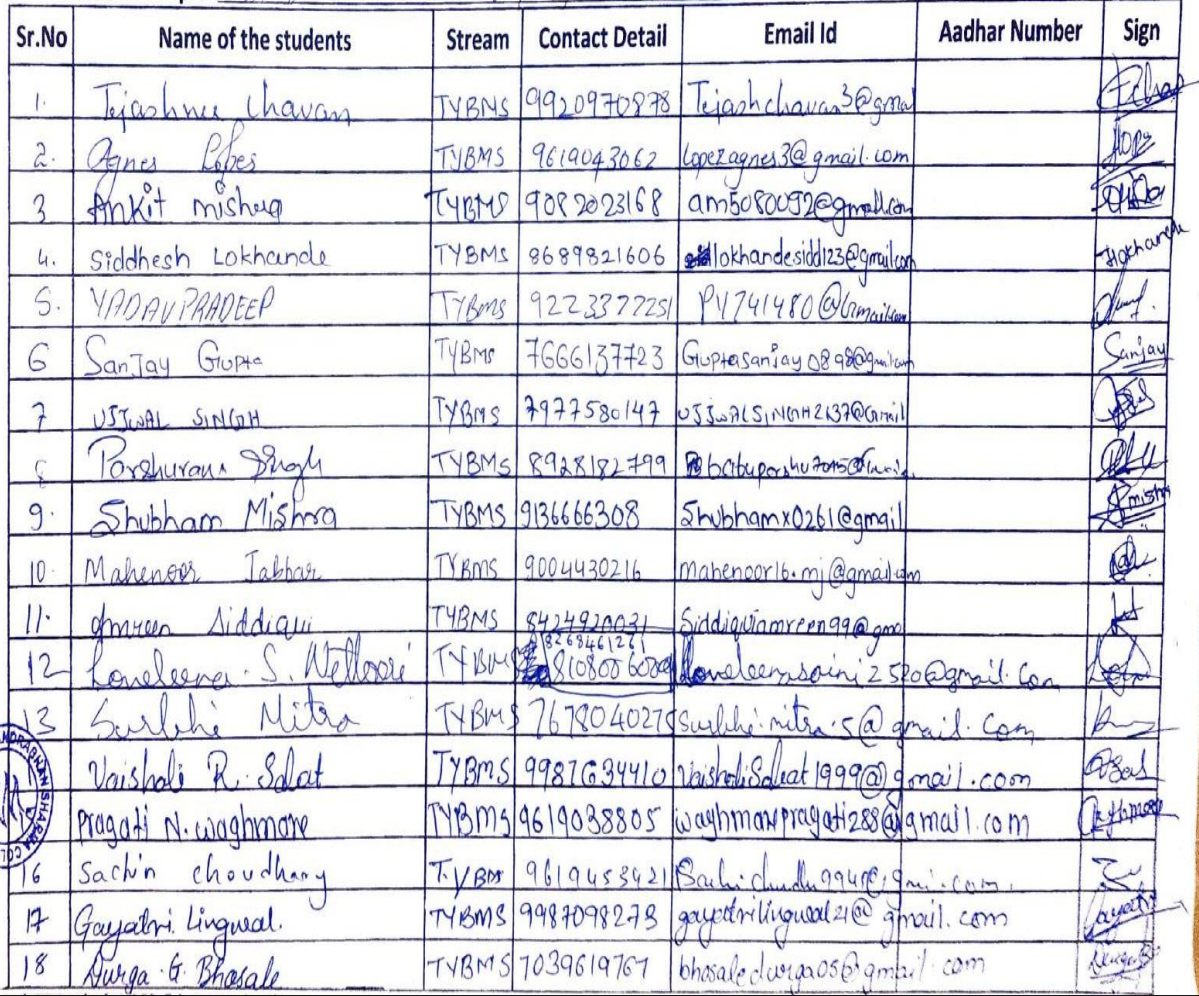 Sr.No Name of the students Stream Contact Detail Email Id Aadhar Number Sign
1. Tejashree Chavan TYBMS 9920970878 Tejashchavan3@gmai
2. Agnes Lopes TYBMS 9619043062 lopezagnes3@gmail.com
3 Ankit mishra TYBMS 9082023168 am5080092@gmail.com
4. Siddhesh Lokhande TYBMS 8689821606 lokhandesidd123@gmail.com Lokhande
5. YADAV PRADEEP TYBMS 9223377251 PY741480@Gmail.com
6 Sanjay Gupta TYBMS 7666137723 Guptasanjay0898@gmail.com Sanjay
7 UJJWAL SINGH TYBMS 7977580147 UJJWALSINGH2637@Gmail
8 Parshuram Singh TYBMS 8928182799
9. Shubham Mishra TYBMS 9136666308 Shubhamx0261@gmail Smishra
10. Mahenoor Jabbar TYBMS 9004430216 mahenoor16.mj@gmail.com
11. Amreen Siddiqui TYBMS 8424920031 Siddiquiamreen99@gma
8268461261
12 Loveleena S. TYBMS loveleenasoini2520@gmail.com
13 Surbhi Mitra TYBMS 7678040275 Surbhi.mitra.5@gmail.com
Vaishali R. Salat TYBMS 9987634410 VaishaliSalat1999@gmail.com
Pragati N. Waghmare TYBMS 9619038805 waghmarepragati288@gmail.com
16 Sachin choudhary T.YBMS 9619453421
17 Gayatri. Lingwal. TYBMS 9987098273 gayatrilingwal21@gmail.com Gayatri
18 Durga G. Bhosale TYBMS 7039619767 bhosaledurga05@gmail.com